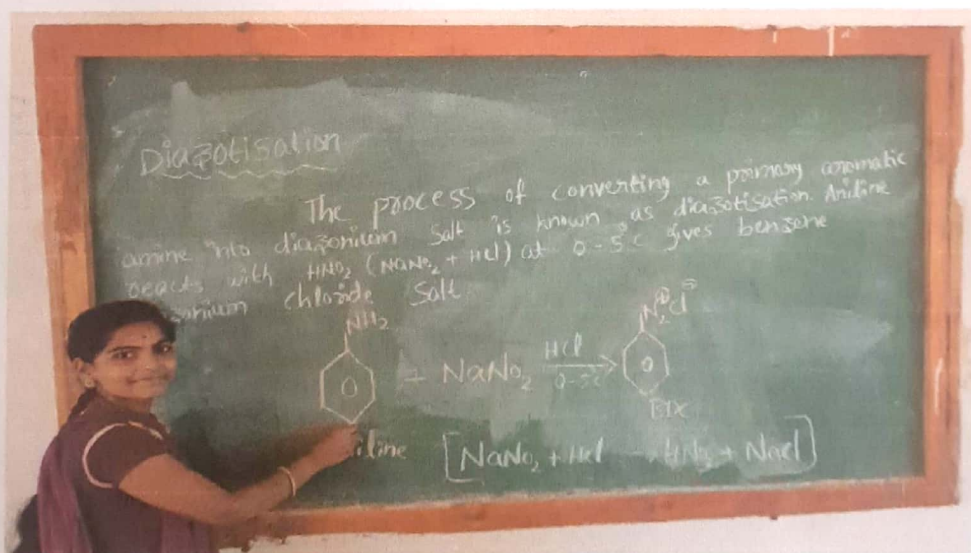 Diazotisation
The process of converting a primary aromatic
amine into diazonium salt is known as diazotisation. Aniline
reacts with HNO₂ (NaNO₂ + HCl) at 0-5°C gives benzene
chloride Salt
NH₂
N₂⊕Cl⊖
+ NaNO₂ HCl
0-5°C
BDC
[NaNO₂ + HCl HNO₂ + NaCl]